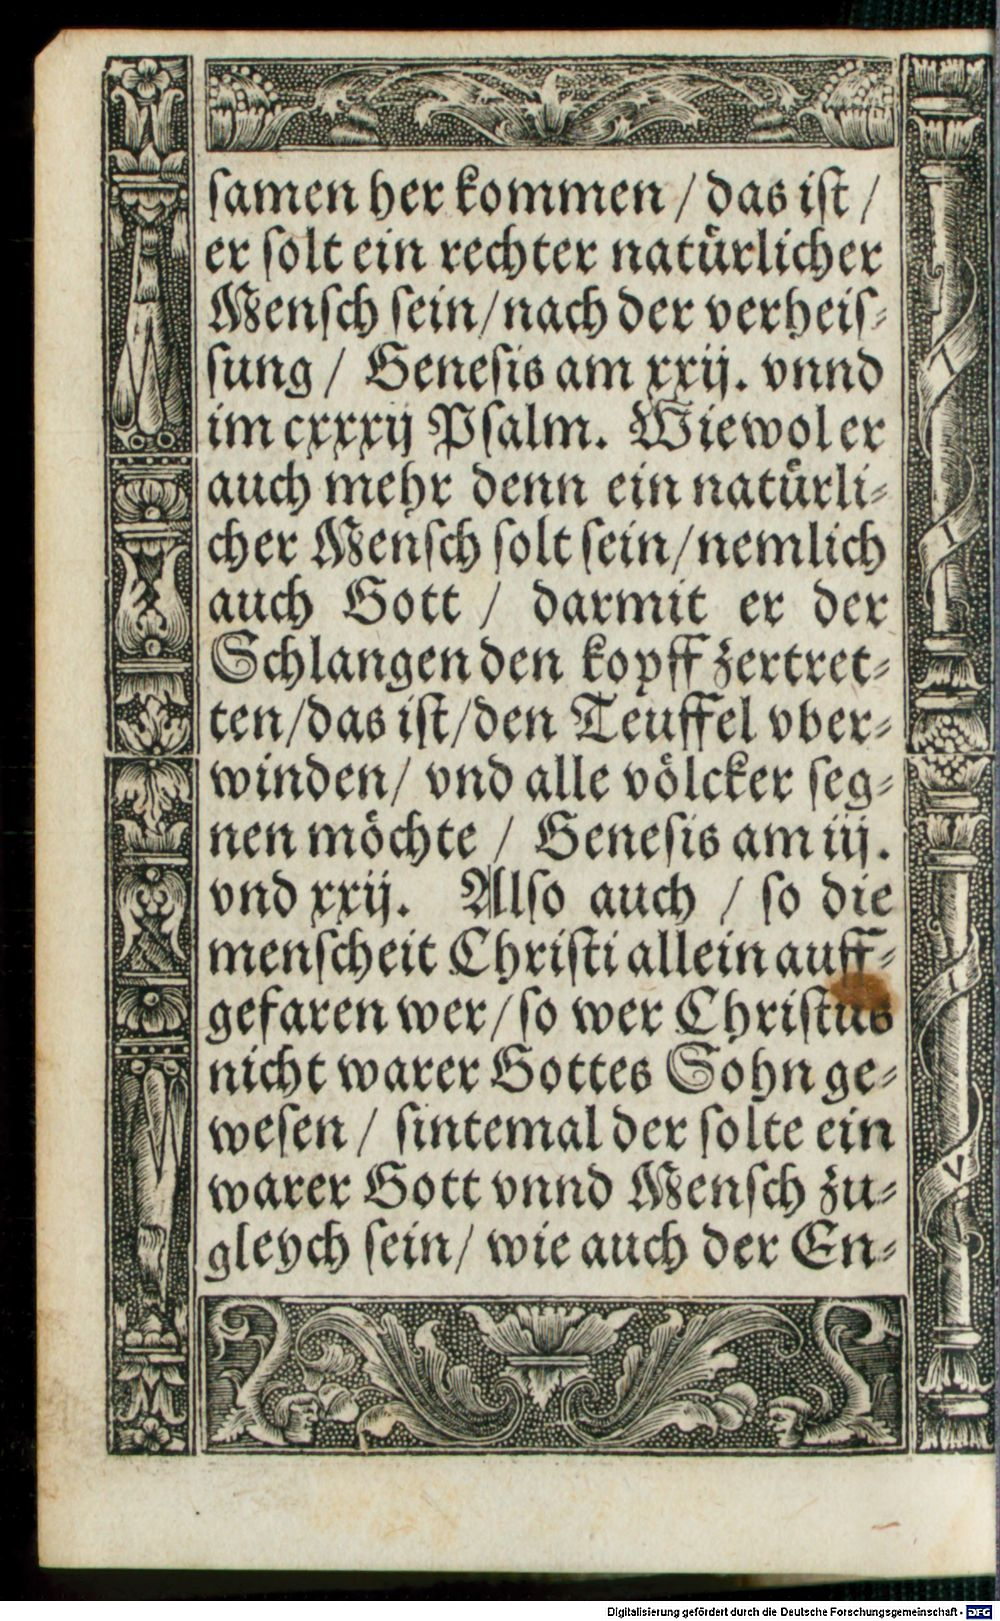 samen her kommen / das ist /
er solt ein rechter natürlicher
Mensch sein/nach der verheis-
sung / Genesis am xxij. vnnd
im cxxxij Psalm. Wiewol er
auch mehr denn ein natürli-
cher Mensch solt sein/nemlich
auch Gott / darmit er der
Schlangen den kopff zertret-
ten/das ist/den Teuffel vber-
winden/ vnd alle völcker seg-
nen möchte / Genesis am iij.
vnd xxij. Also auch / so die
menscheit Christi allein auff-
gefaren wer/so wer Christus
nicht warer Gottes Sohn ge-
wesen / sintemal der solte ein
warer Gott vnnd Mensch zu-
gleych sein/ wie auch der En-
Digitalisierung gefördert durch die Deutsche Forschungsgemeinschaft - DFG